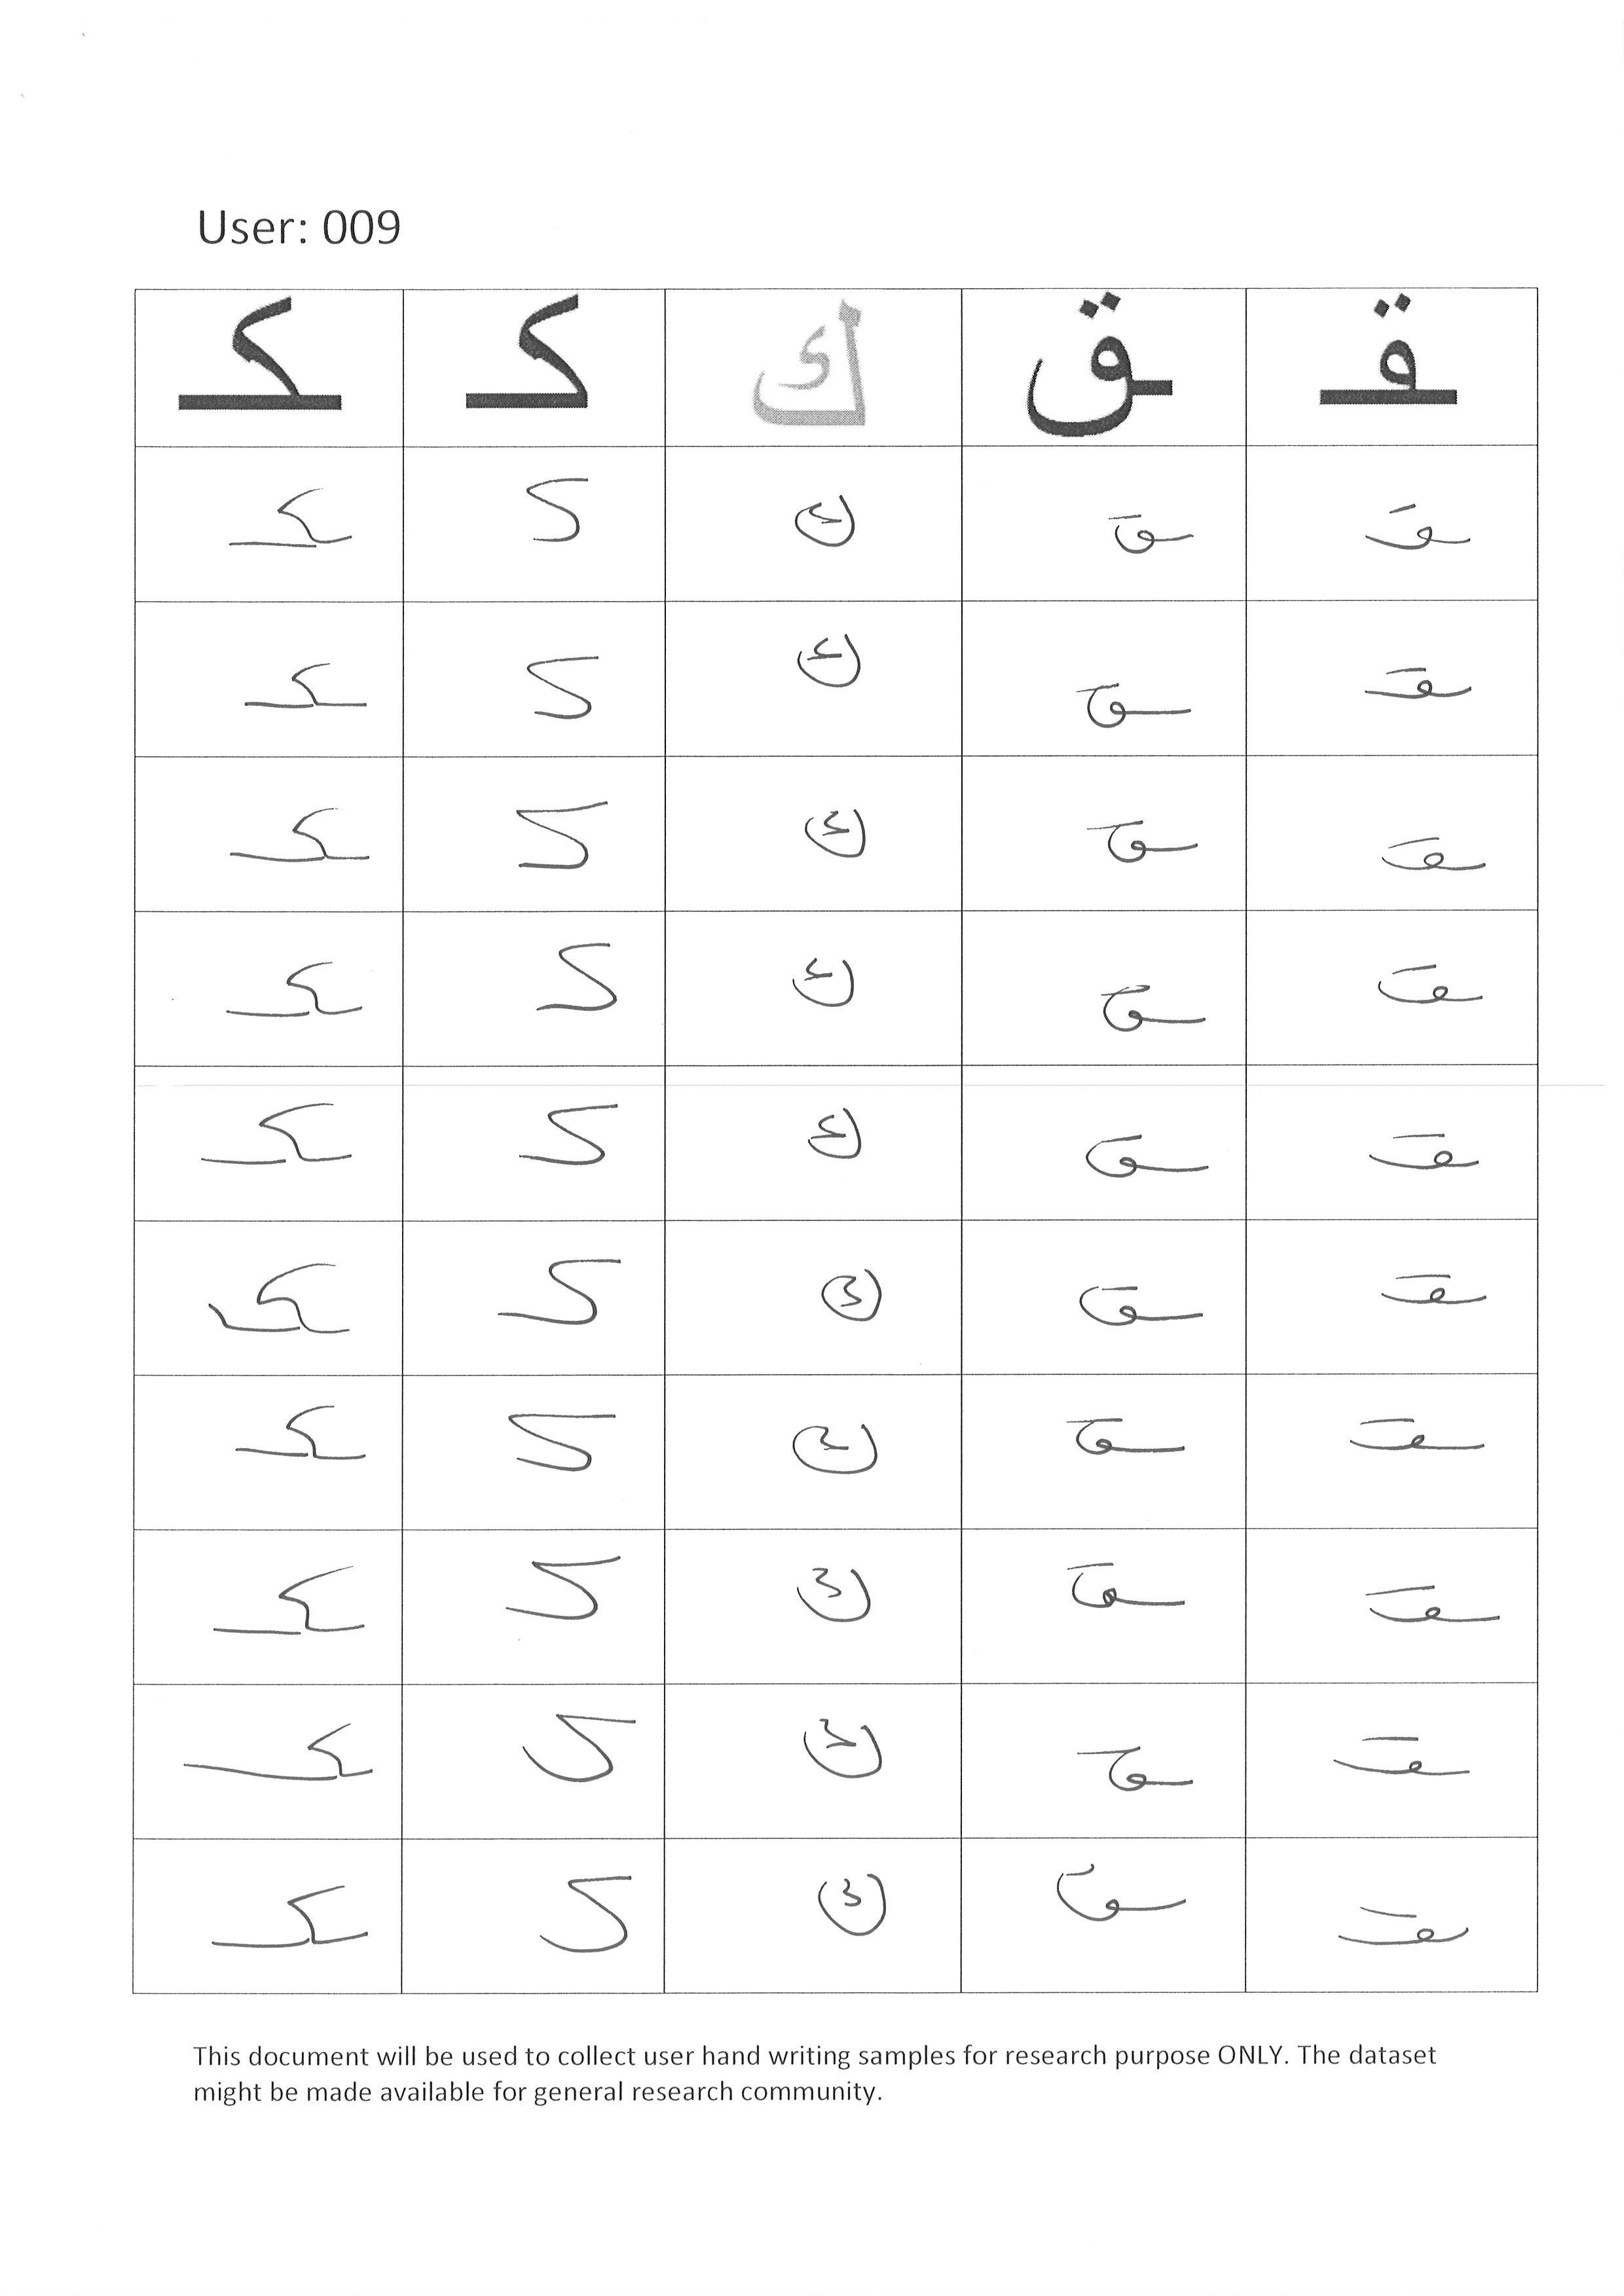 User: 009
ـكـ كـ ك ـق ـقـ
ـكـ كـ ك ـق ـقـ
ـكـ كـ ك ـق ـقـ
ـكـ كـ ك ـق ـقـ
ـكـ كـ ك ـق ـقـ
ـكـ كـ ك ـق ـقـ
ـكـ كـ ك ـق ـقـ
ـكـ كـ ك ـق ـقـ
ـكـ كـ ك ـق ـقـ
ـكـ كـ ك ـق ـقـ
ـكـ كـ ك ـق ـقـ
This document will be used to collect user hand writing samples for research purpose ONLY. The dataset
might be made available for general research community.